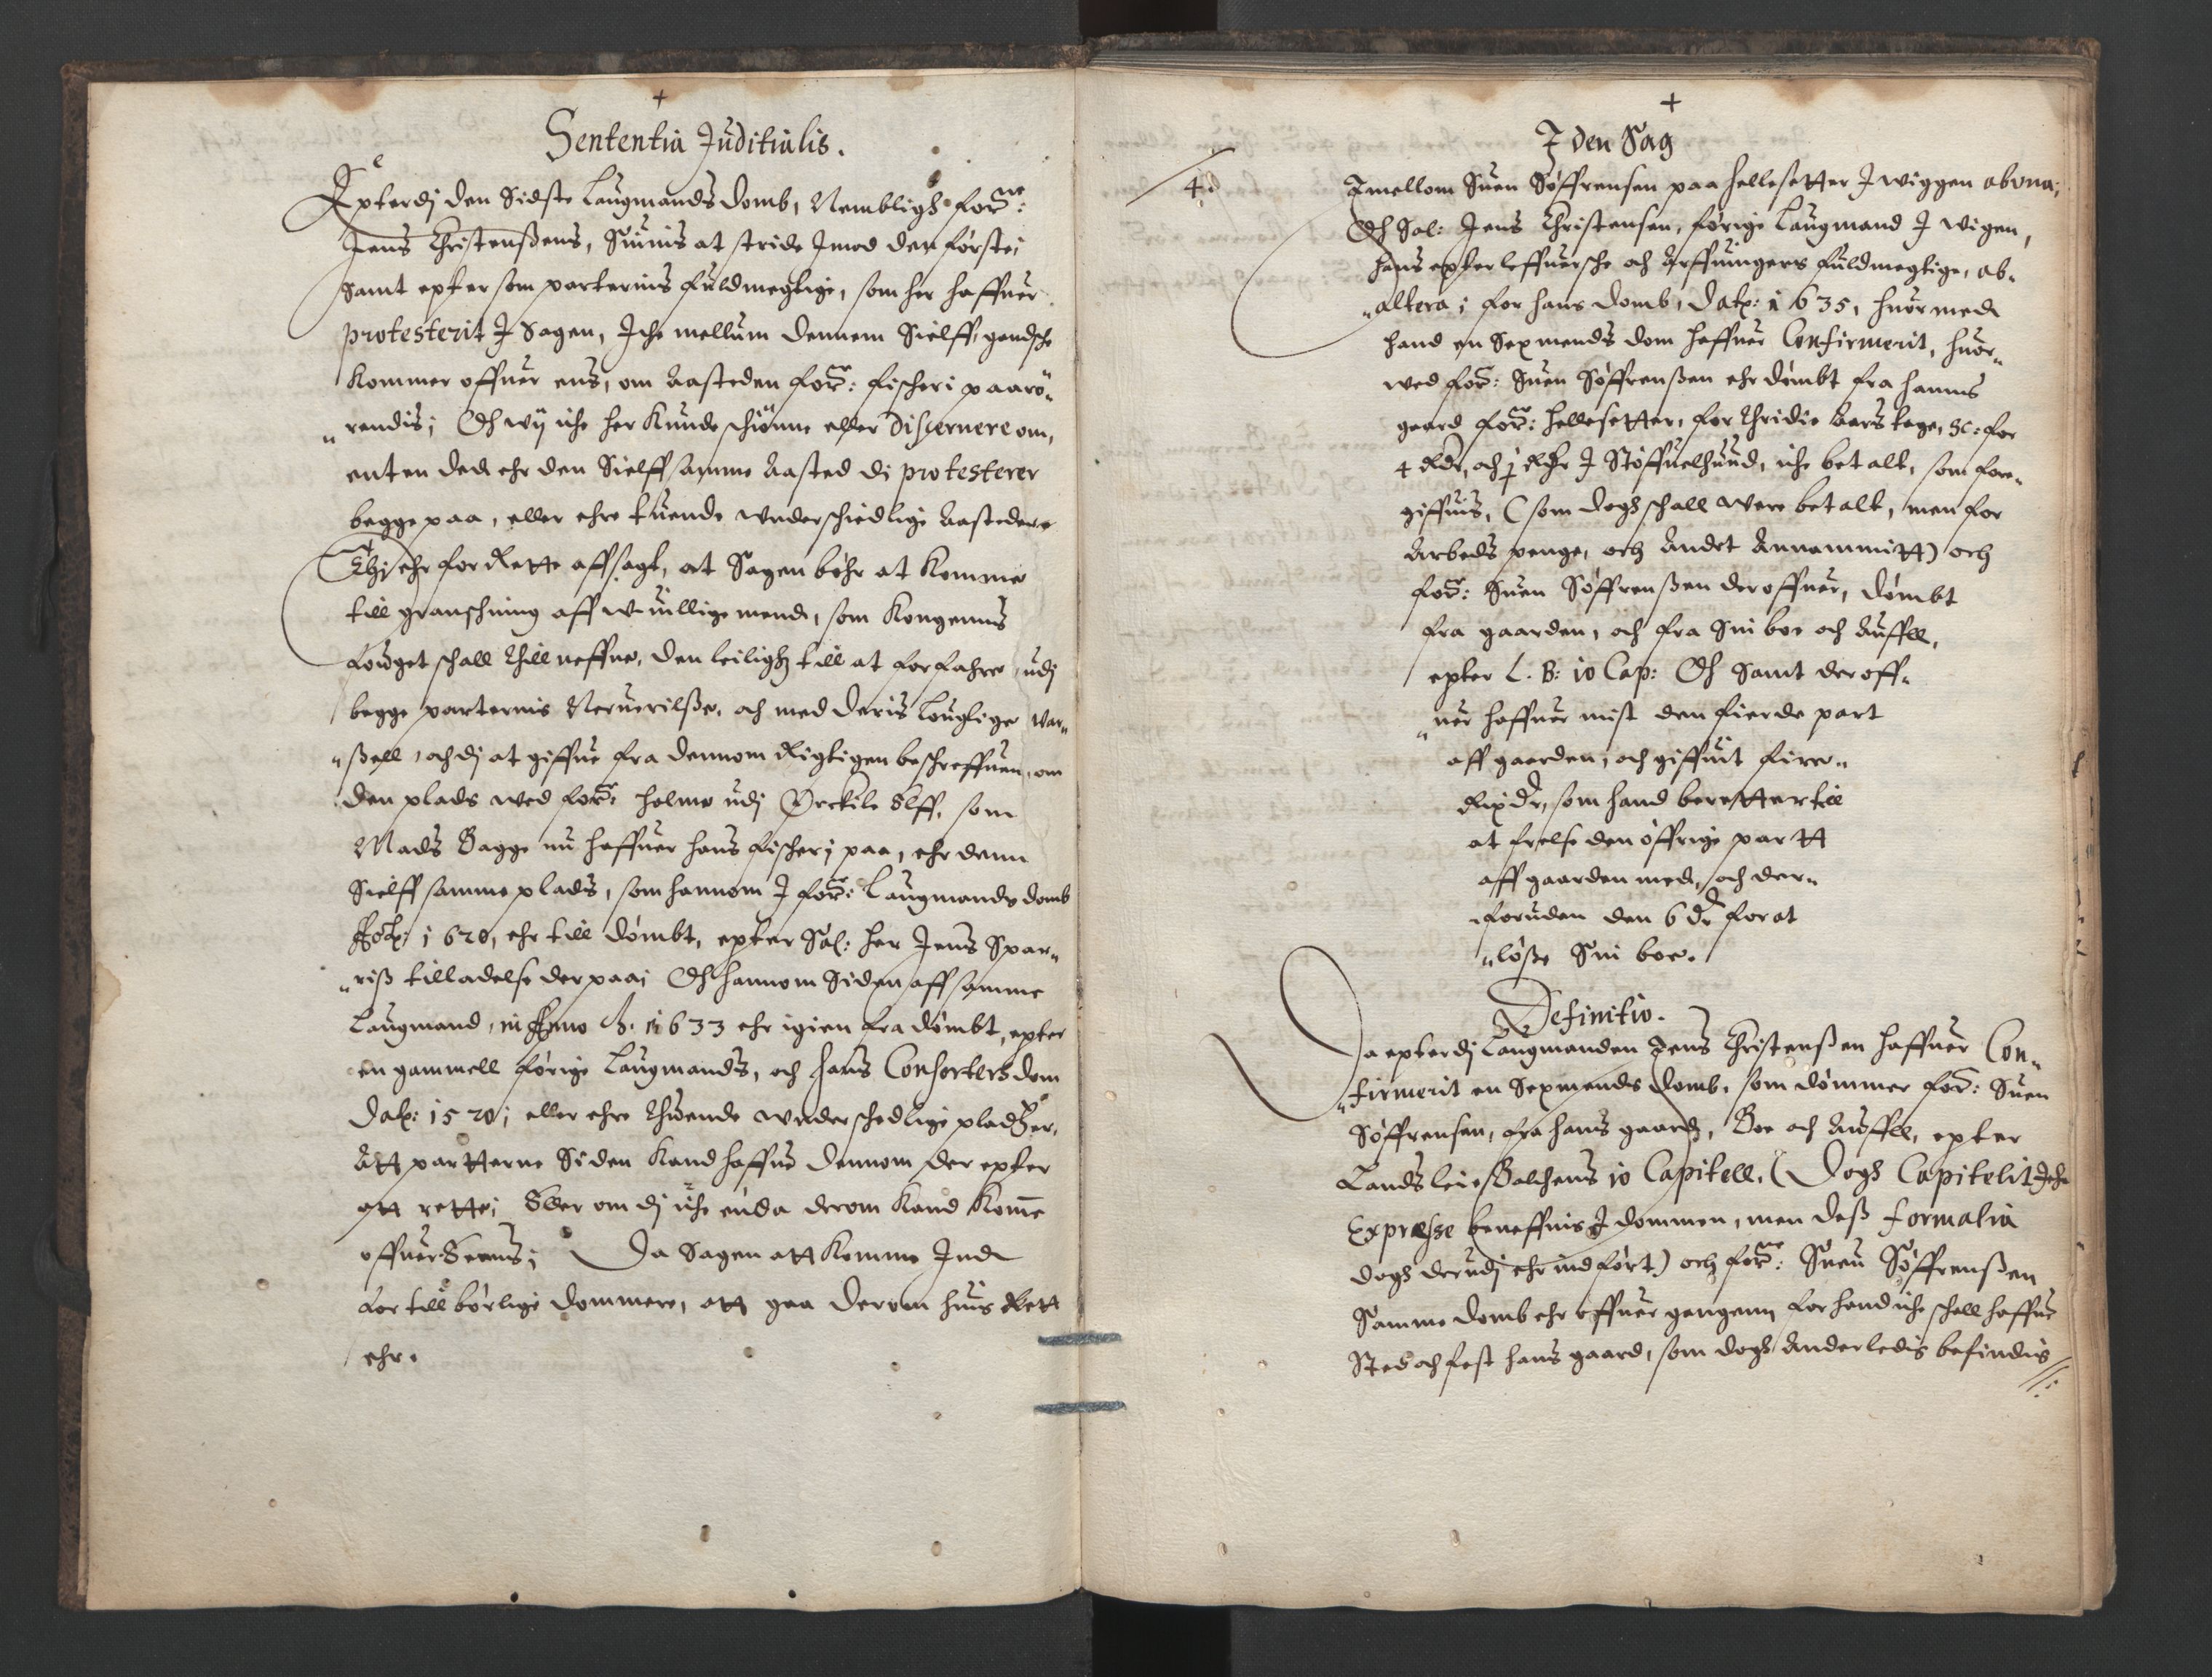 +
Sententia Juditialis.
Epterdj den Sidste Laugmands domb, Nembligh forne:
Jens Christenßens, Siunis at stride Jmod den første;
Samt epter som parternis fuldmegtige, som her haffuer
protesterit J Sagen, Jche mellum dennem Sielff, gandsche
kommer offuer ens, om Aasteden forne: fischeri paarö„
„rendis; Och wij iche her kunde schiönne eller Discernere om,
enten ded ehr den Sielff samme Aasted di protesterer
begge paa, eller ehre tuende underschiedlige Aastedere
Thj ehr for Rette affsagt, at Sagen böhr at komme
till granschning aff w-uillige mend, som Kongenns
fouget schall till neffne, den leiligh till at forfahre udj
begge parternis Neruerilße, och med deris louglige war„
„ßell, och dj at giffue fra dennom Rigtigen beschreffuen, om
den plads wed forne: holme udj Örckile Elff, som
Mads Bagge nu haffuer hans fischerj paa, ehr denn
Sielff samme plads, som hannom J forne: Laugmands domb
1620, ehr till dömbt, epter Sal: her Jens Spar„
„riß tilladelse der paa; Och hannom Siden aff samme
Laugmand, in Anno 1633 ehr igien fra dömbt, epter
en gammell förige Laugmands, och hans Consorters dom
Dat: 1520; eller ehre thuende underschedlige pladtzer,
Att partterne Siden kand haffue dennom der epter
att rette; Eller om dj iche enda derom kand komme
offuer Eens; Da Sagen att komme Ind
for tillbörlige dommere, att gaa derom huis Rett
ehr.
+
J den Sag
4.
Jmellom Suen Söffrensen paa hellesetter J wiggen ab una;
Och Sal: Jens Christensen, förige Laugmand J wigen,
hans epterleffuersche och Arffuingers fuldmegtige, ab„
„altera; for hans domb, Dat: 1635, huormed
hand en Sexmends dom haffuer Confirmerit, huor„
wed forne: Suen Söffrenßen ehr dömbt fra hanns
gaard forne: hellesetter, for thridie Aars tage, sc: for
4 Rdr, och j Rdr J Stöffuelhuud, iche betalt, som fore„
giffuis, (som dogh schall were betalt, men for
Arbeds penge, och Andet Annammitt) och
forne: Suen Söffrenßen deroffuer, dömbt
fra gaarden, och fra Sin boe och Auffell,
epter L. B: 10 Cap: Och Samt deroff„
„uer haffuer mist den fierde part
aff gaarden, och giffuit fire„
Rixdr, som hand berettter till
at frelse den öffrige partt
aff gaarden med, och der„
„foruden den 6 dr for at
„löße Sin boe.
Definitio.
Da epterdj Laugmanden Jens Christenßen haffuer Con„
„firmerit en Sexmends domb, som dömmer forne: Suen
Söffrensen, fra hans gaard, Boe och Auffell, epter
Lands leie Balchens 10 Capitell, (Dogh Capitelit Jche
Expresse beneffnis J dommen, men deß formalia
dogh derudj ehr indfört) och forne: Suen Söffrenßen
Samme domb ehr offuer gangenn for hand iche schall haffue
Sted och fest hans gaard, som dogh Anderledis befindis